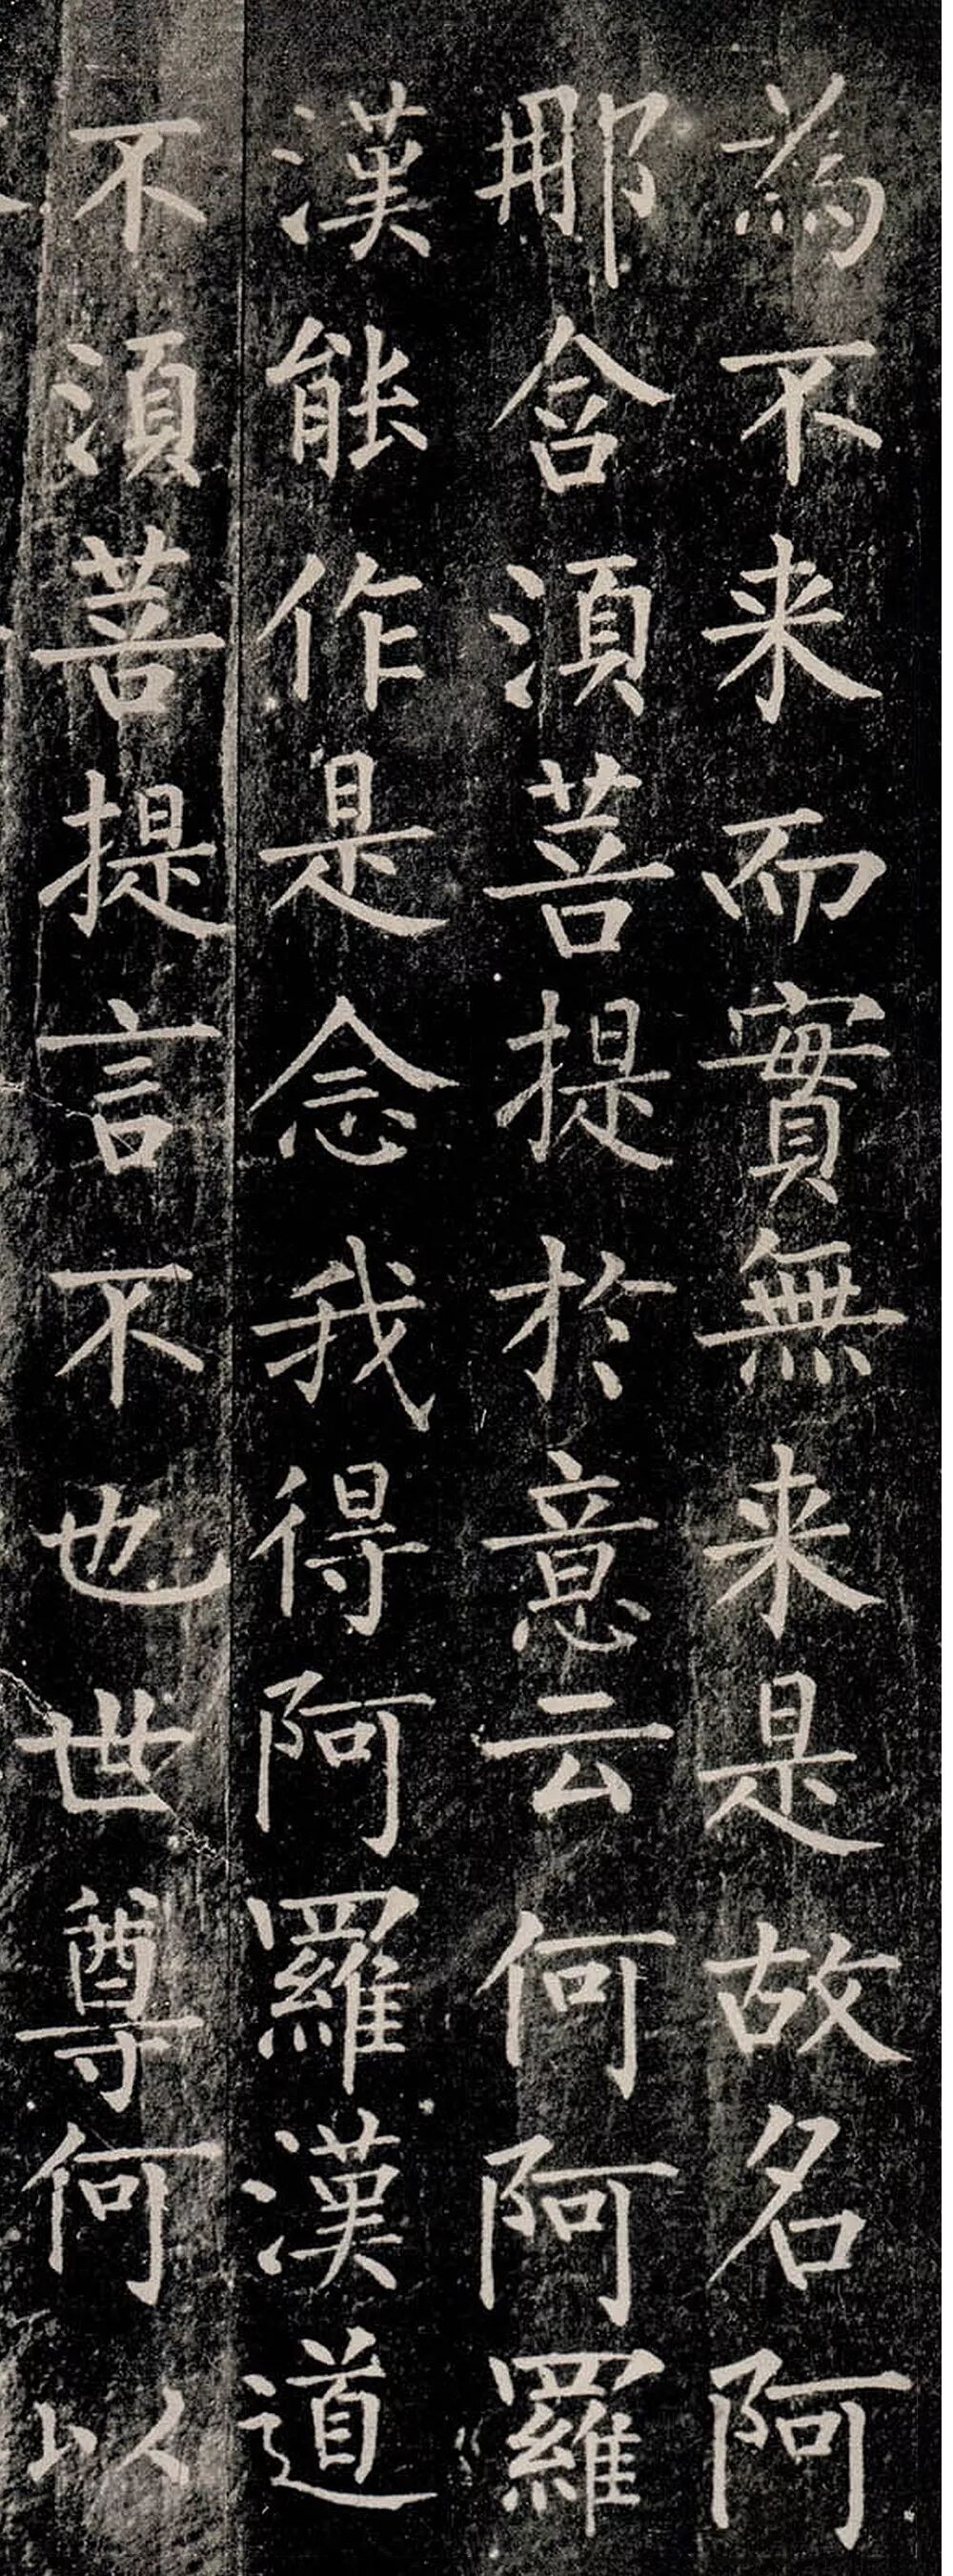 為不来而實無来是故名阿
那含須菩提於意云何阿羅
漢能作是念我得阿羅漢道
不須菩提言不也世尊何以